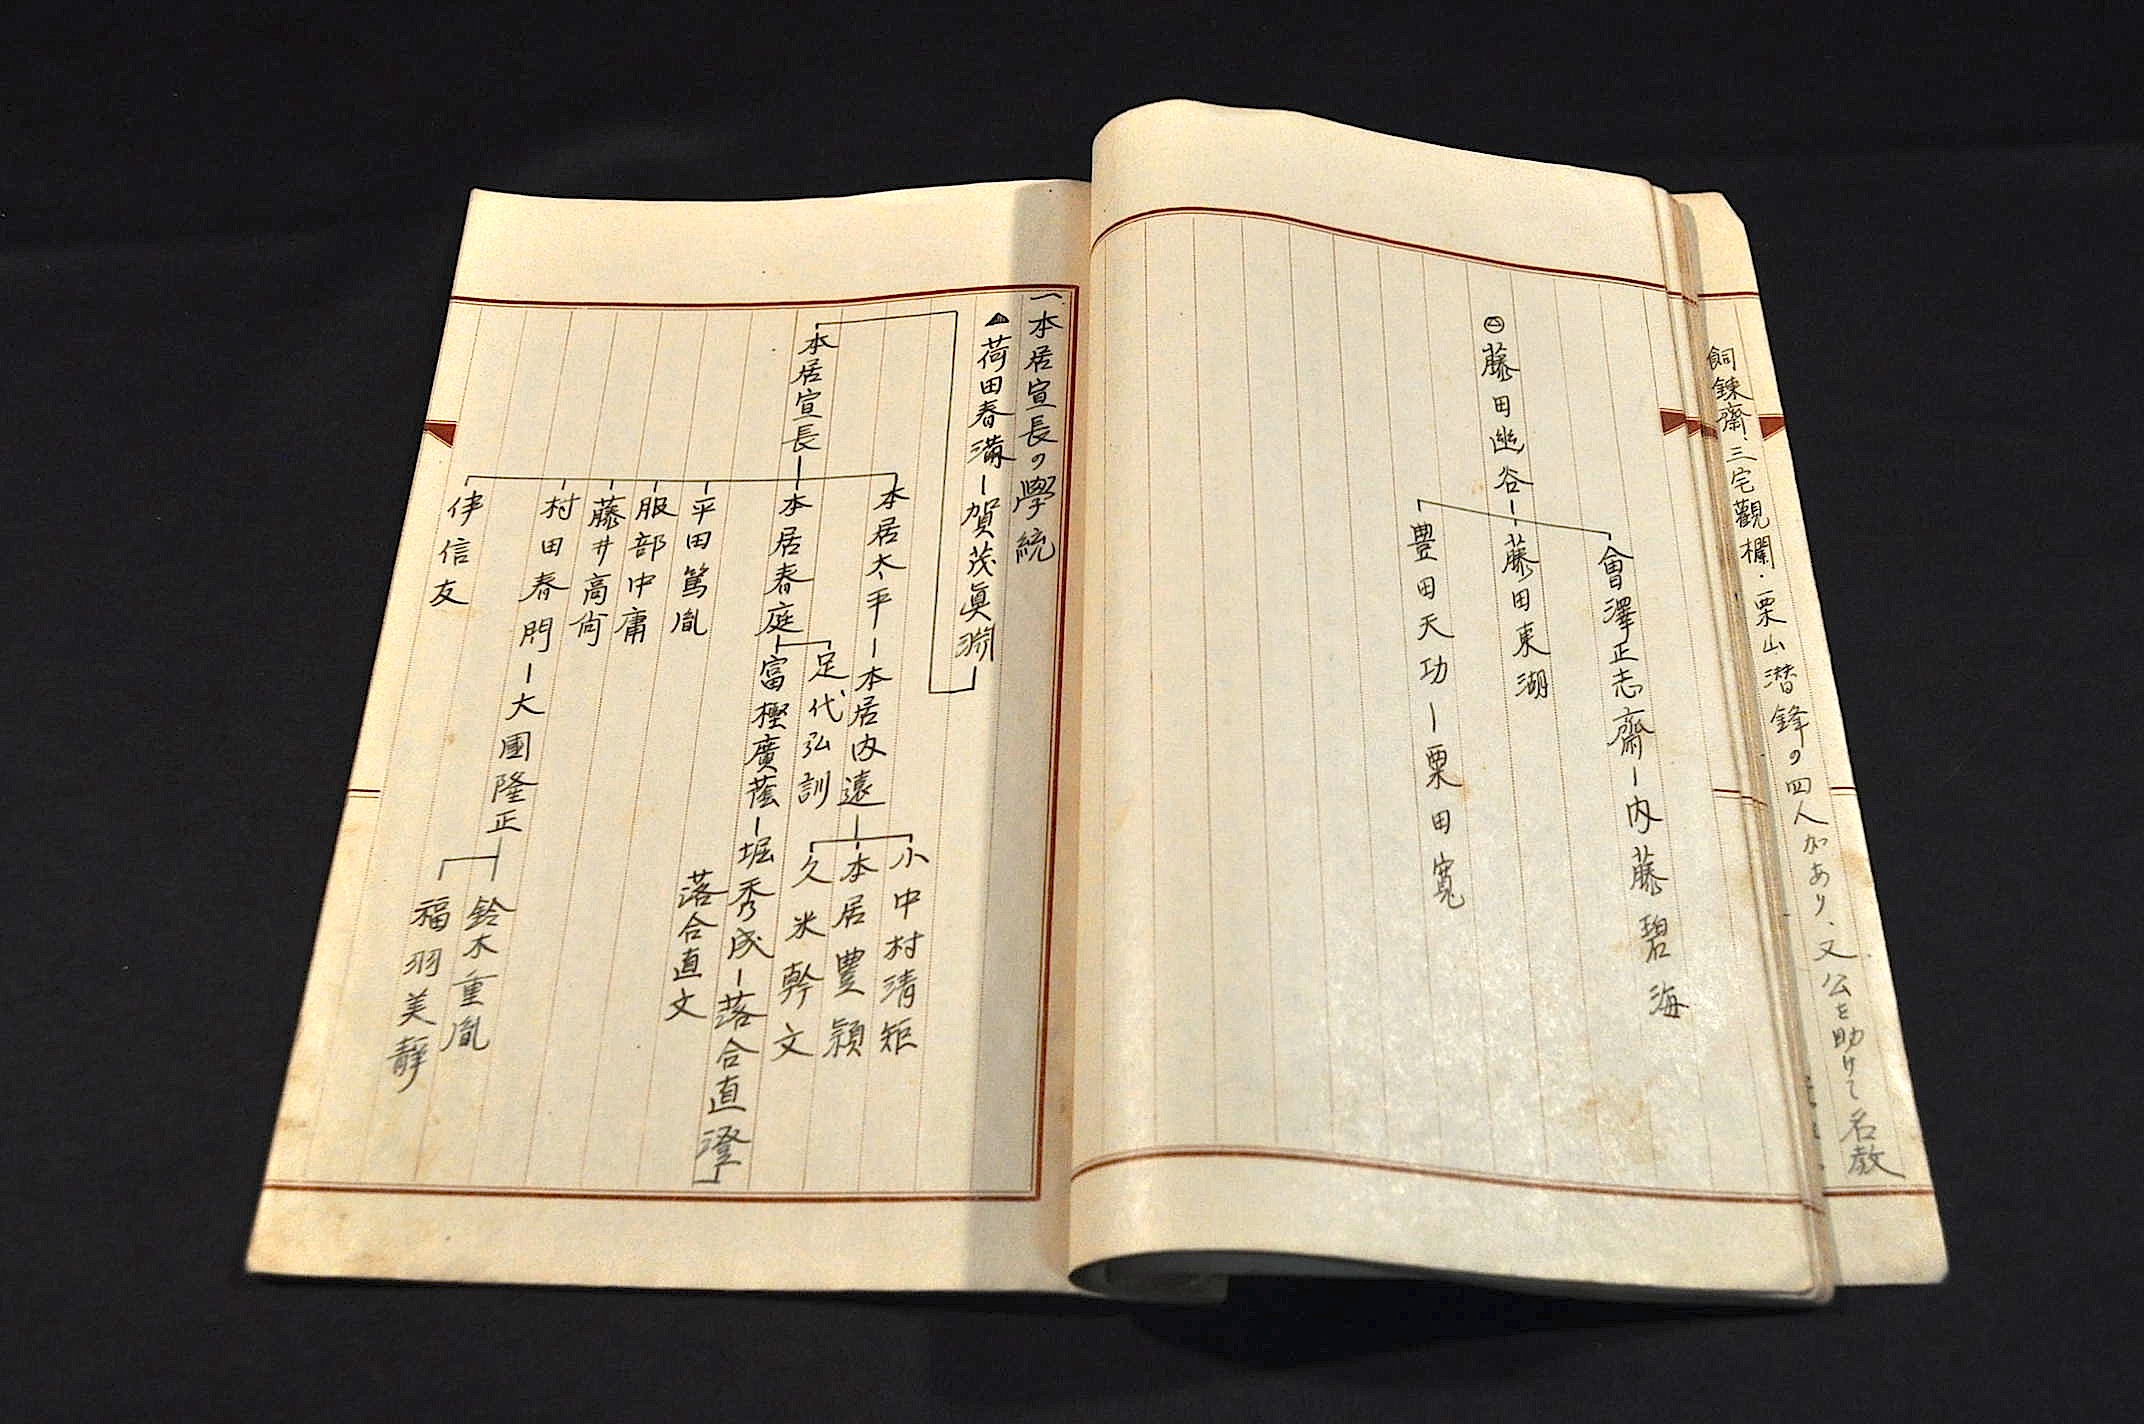 飼錬齋・三宅觀欄・栗山潜鋒の四人があり、又公を助けて名教
藤田幽谷ー藤田東湖
會澤正志齋ー内藤碧海
豊田天功ー栗田寛
本居宣長の學統
▲荷田春満ー賀茂眞淵
本居宣長
本居太平ー本居内遠
小中村清矩
本居豊頴
久米幹文
本居春庭
足代弘訓
富樫廣蔭ー堀秀成ー落合直澄
落合直文
平田篤胤
服部中庸
藤井高尚
村田春門ー大國隆正
鈴木重胤
福羽美静
伴信友